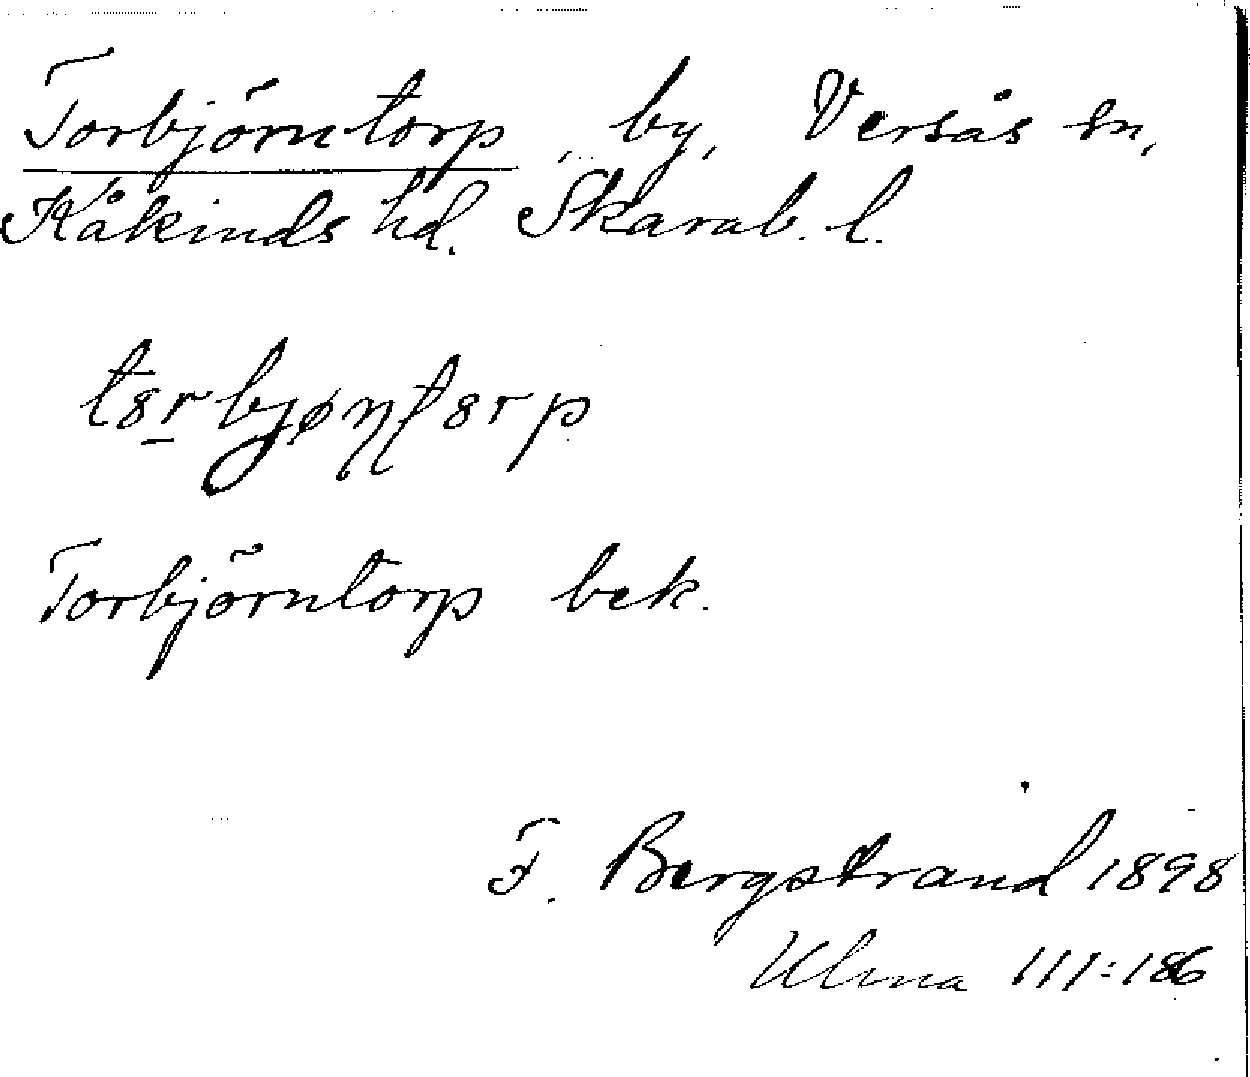 Torbjörntorp, by, Versås sn,
Kåkinds hd. Skarab. l.
tɞrbjøɲʈɞrp
Torbjörntorp bek.
F. Bergstrand 1898
Ulma 111:186